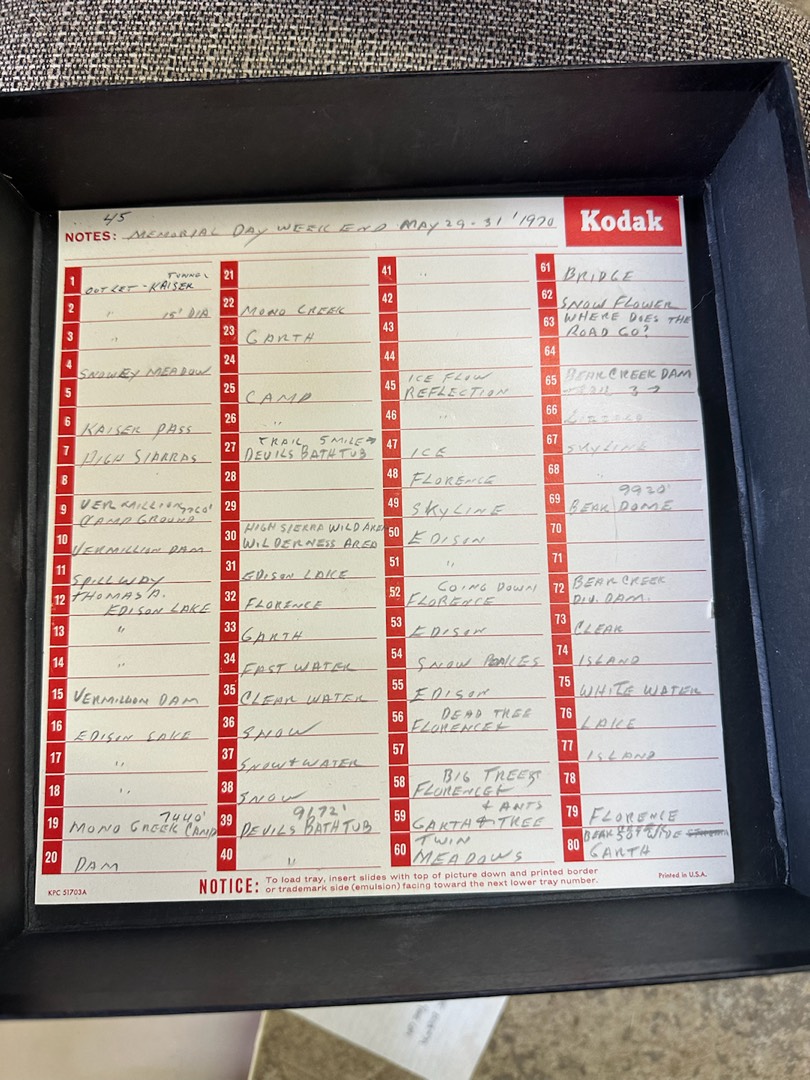 45
NOTES: MEMORIAL DAY WEEK END MAY 29-31 '1970
Kodak
1 OUTLET-KAISER TUNNEL
2 " 15' DIA
3 "
4 SNOWEY MEADOW
5
6 KAISER PASS
7 HIGH SIARRAS
8
9 VERMILLION 7760'
CAMP GROUND
10 VERMILLION DAM
11 SPILLWAY
12 THOMAS A.
EDISON LAKE
13 "
14 "
15 VERMILLION DAM
16 EDISON LAKE
17 "
18 "
19 7440'
MONO CREEK CAMP
20 DAM
21
22 MONO CREEK
23 GARTH
24
25 CAMP
26 "
27 TRAIL 5 MILE→
DEVILS BATHTUB
28
29
30 HIGH SIERRA WILD AREA
WILDERNESS AREA
31 EDISON LAKE
32 FLORENCE
33 GARTH
34 FAST WATER
35 CLEAR WATER
36 SNOW
37 SNOW + WATER
38 SNOW
39 9172'
DEVILS BATHTUB
40 "
41 "
42
43
44
45 ICE FLOW
REFLECTION
46 "
47 ICE
48 FLORENCE
49 SKYLINE
50 EDISON
51 "
52 GOING DOWN
FLORENCE
53 EDISON
54 SNOW
55 EDISON
56 DEAD TREE
FLORENCE +
57
58 BIG TREES
FLORENCE +
59 + ANTS
GARTH + TREE
60 TWIN
MEADOWS
61 BRIDGE
62 SNOW FLOWER
63 WHERE DOES THE
ROAD GO?
64
65 BEAR CREEK DAM
66
67 SKYLINE
68 "
69 9920'
BEAR DOME
70
71
72 BEAR CREEK
DIV. DAM.
73 CLEAR
74 ISLAND
75 WHITE WATER
76 LAKE
77 ISLAND
78
79 FLORENCE
80 GARTH
NOTICE: To load tray, insert slides with top of picture down and printed border
or trademark side (emulsion) facing toward the next lower tray number.
KPC 51703A
Printed in U.S.A.